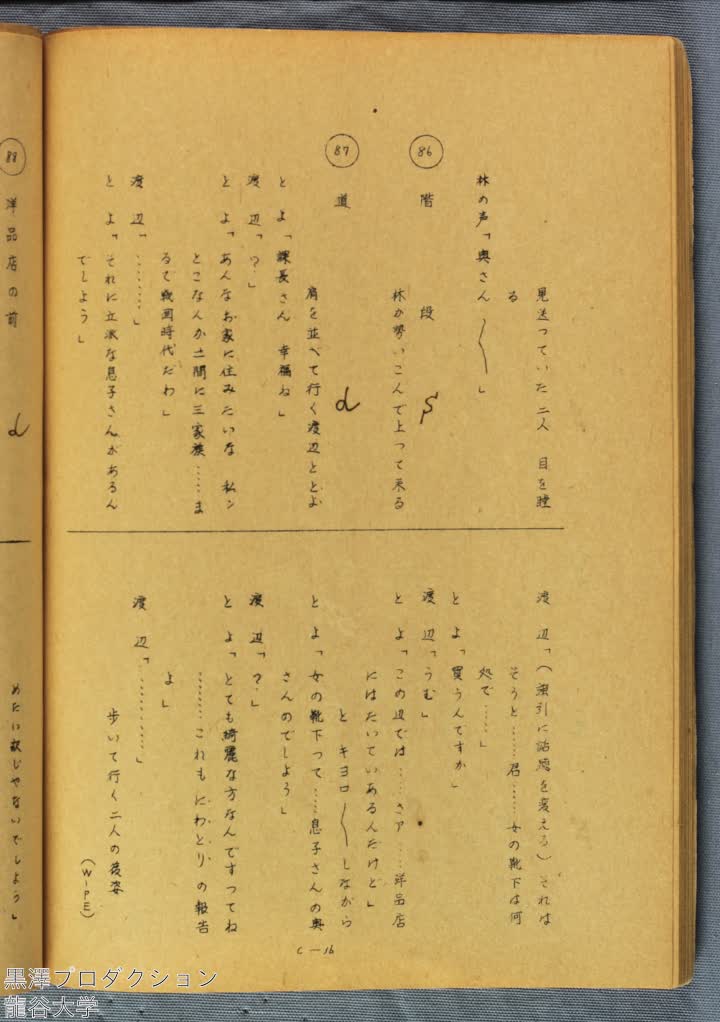 見送つていた二人　目を瞠
る
林の声「奥さん〳〵」
86　階　段　S
林が勢いこんで上つて来る
87　道　d
肩を並べて行く渡辺ととよ
とよ「課長さん　幸福ね」
渡辺「？」
とよ「あんなお家に住みたいな　私ン
とこなんか一間に三家族……ま
るで戦国時代だわ」
渡辺「………」
とよ「それに立派な息子さんがあるん
でしよう」
渡辺「（強引に話題を変える）それは
そうと……君……女の靴下は何
処で……」
とよ「買うんですか」
渡辺「うむ」
とよ「この辺では……さア……洋品店
にはたいていあるんだけど」
と　キヨロ〳〵しながら
とよ「女の靴下つて……息子さんの奥
さんのでしよう」
渡辺「？」
とよ「とても綺麗な方なんですつてね
………これもにわとりの報告
よ」
渡辺「…………」
歩いて行く二人の後姿
（WIPE）
C－16
88　洋品店の前　d
めたい訳じやないでしよう」
黒澤プロダクション
龍谷大学